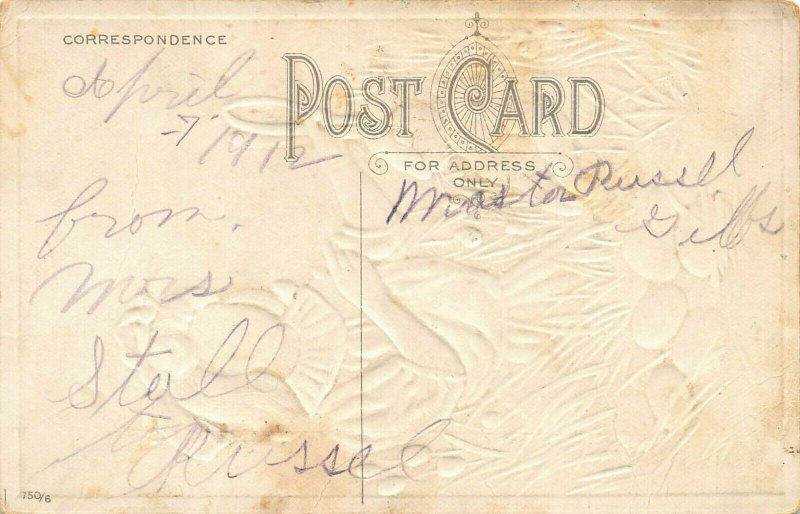 CORRESPONDENCE
POST CARD
FOR ADDRESS
ONLY
April
7
1912
from.
Mrs
Stall
to
Russel
Master Russel
Gibbs
750/6